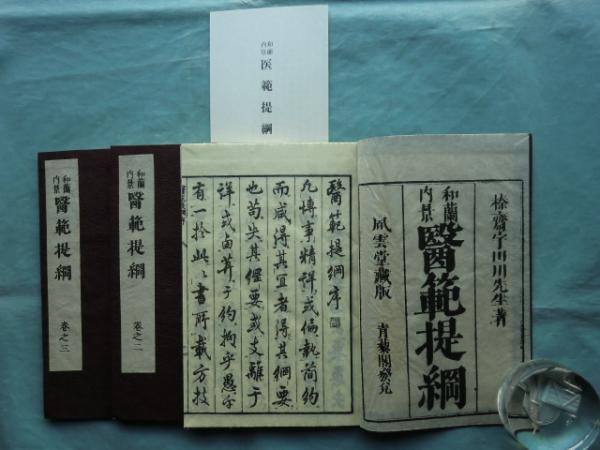 和蘭
内景
医範提綱
榛齋宇田川先生著
和蘭
内景
醫範提綱
風雲堂藏版
青藜閣發兌
醫範提綱序
凡博事精詳或偏執简約
而咸得其宜者得其綱要
也苟失其綱要或支離于
詳或鹵莽于約拘乎愚字
有一於此此書所載方技
和蘭
内景
醫範提綱
卷之二
和蘭
内景
醫範提綱
卷之三